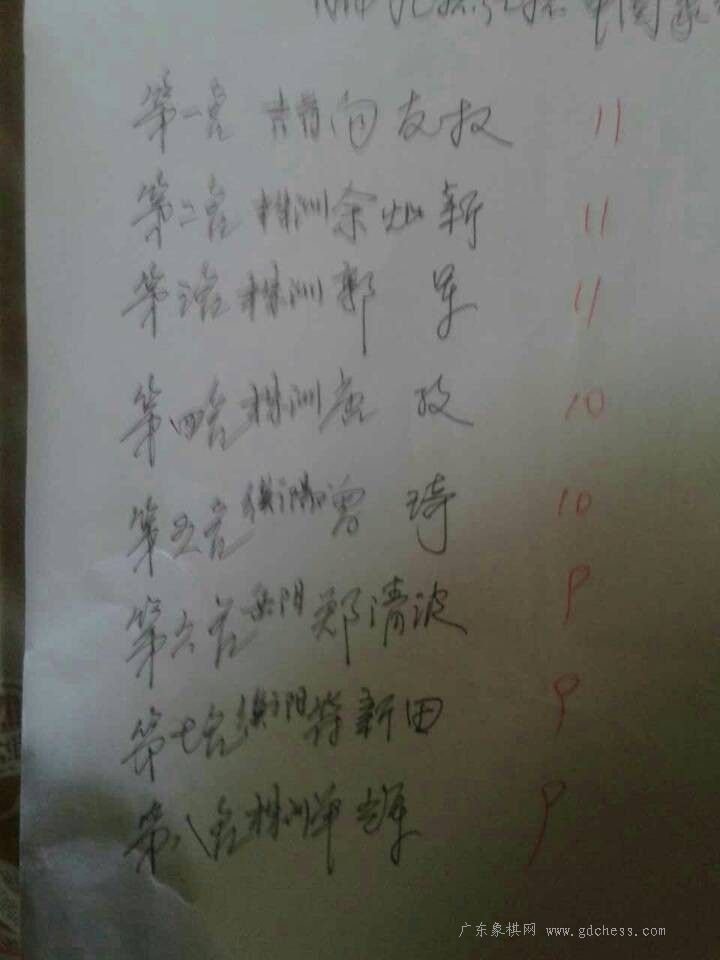 中国象
第一名 吉首向友权 11
第二名 株洲余灿新 11
第三名 株洲郭 军 11
第四名 株洲唐 政 10
第五名 衡阳曾 琦 10
第六名 岳阳郑清波 9
第七名 衡阳符新田 9
第八名 株洲单 军 9
广东象棋网 www.gdchess.com